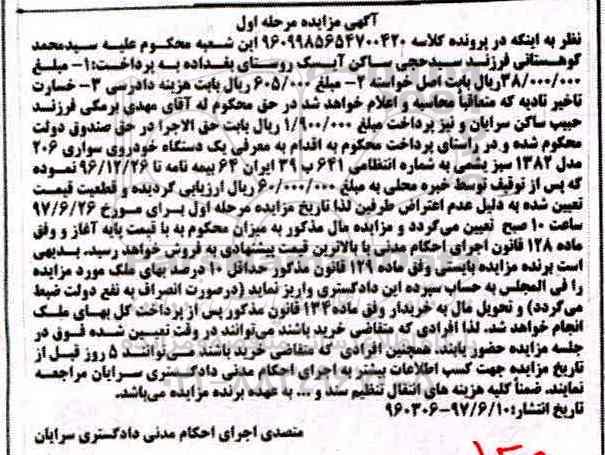 آگهی مزایده مرحله اول
نظر به اینکه در پرونده کلاسه ۹۶۰۹۹۸۵۶۵۴۷۰۰۴۲۰ این شعبه محکوم علیه سیدمحمد
کوهستانی فرزند سیدحجی ساکن آیسک روستای بغداده به پرداخت:۱- مبلغ
۳۸/۰۰۰/۰۰۰ریال بابت اصل خواسته ۲- مبلغ ۶۰۵/۰۰۰ ریال بابت هزینه دادرسی ۳- خسارت
تاخیر تادیه که متعاقبا محاسبه و اعلام خواهد شد در حق محکوم له آقای مهدی برمکی فرزند
حبیب ساکن سرایان و نیز پرداخت مبلغ ۱/۹۰۰/۰۰۰ ریال بابت حق الاجرا در حق صندوق دولت
محکوم شده و در راستای پرداخت محکوم به اقدام به معرفی یک دستگاه خودروی سواری ۲۰۶
مدل ۱۳۸۲ سبز یشمی به شماره انتظامی ۶۴۱ ب ۳۹ ایران ۶۴ بیمه نامه تا ۹۶/۱۲/۲۶ نموده
که پس از توقیف توسط خبره محلی به مبلغ ۶۰/۰۰۰/۰۰۰ ریال ارزیابی گردیده و قطعیت قیمت
تعیین شده به دلیل عدم اعتراض طرفین لذا تاریخ مزایده مرحله اول برای مورخ ۹۷/۶/۲۶
ساعت ۱۰ صبح تعیین می‌گردد و مزایده مال مذکور به میزان محکوم به با قیمت پایه آغاز و وفق
ماده ۱۲۸ قانون اجرای احکام مدنی با بالاترین قیمت پیشنهادی به فروش خواهد رسید. بدیهی
است برنده مزایده بایستی وفق ماده ۱۲۹ قانون مذکور حداقل ۱۰ درصد بهای ملک مورد مزایده
را فی المجلس به حساب سپرده این دادگستری واریز نماید (درصورت انصراف به نفع دولت ضبط
می‌گردد) و تحویل مال به خریدار وفق ماده۱۳۴ قانون مذکور پس از پرداخت کل بهای ملک
انجام خواهد شد. لذا افرادی که متقاضی خرید باشند می‌توانند در وقت تعیین شده فوق در
جلسه مزایده حضور یابند. همچنین افرادی که متقاضی خرید باشند می‌توانند ۵ روز قبل از
تاریخ مزایده جهت کسب اطلاعات بیشتر به اجرای احکام مدنی دادگستری سرایان مراجعه
نمایند. ضمناً کلیه هزینه های انتقال تنظیم سند و ... به عهده برنده مزایده می‌باشد.
تاریخ انتشار:۹۷/۶/۱۰-۹۶۰۳۰۶
متصدی اجرای احکام مدنی دادگستری سرایان